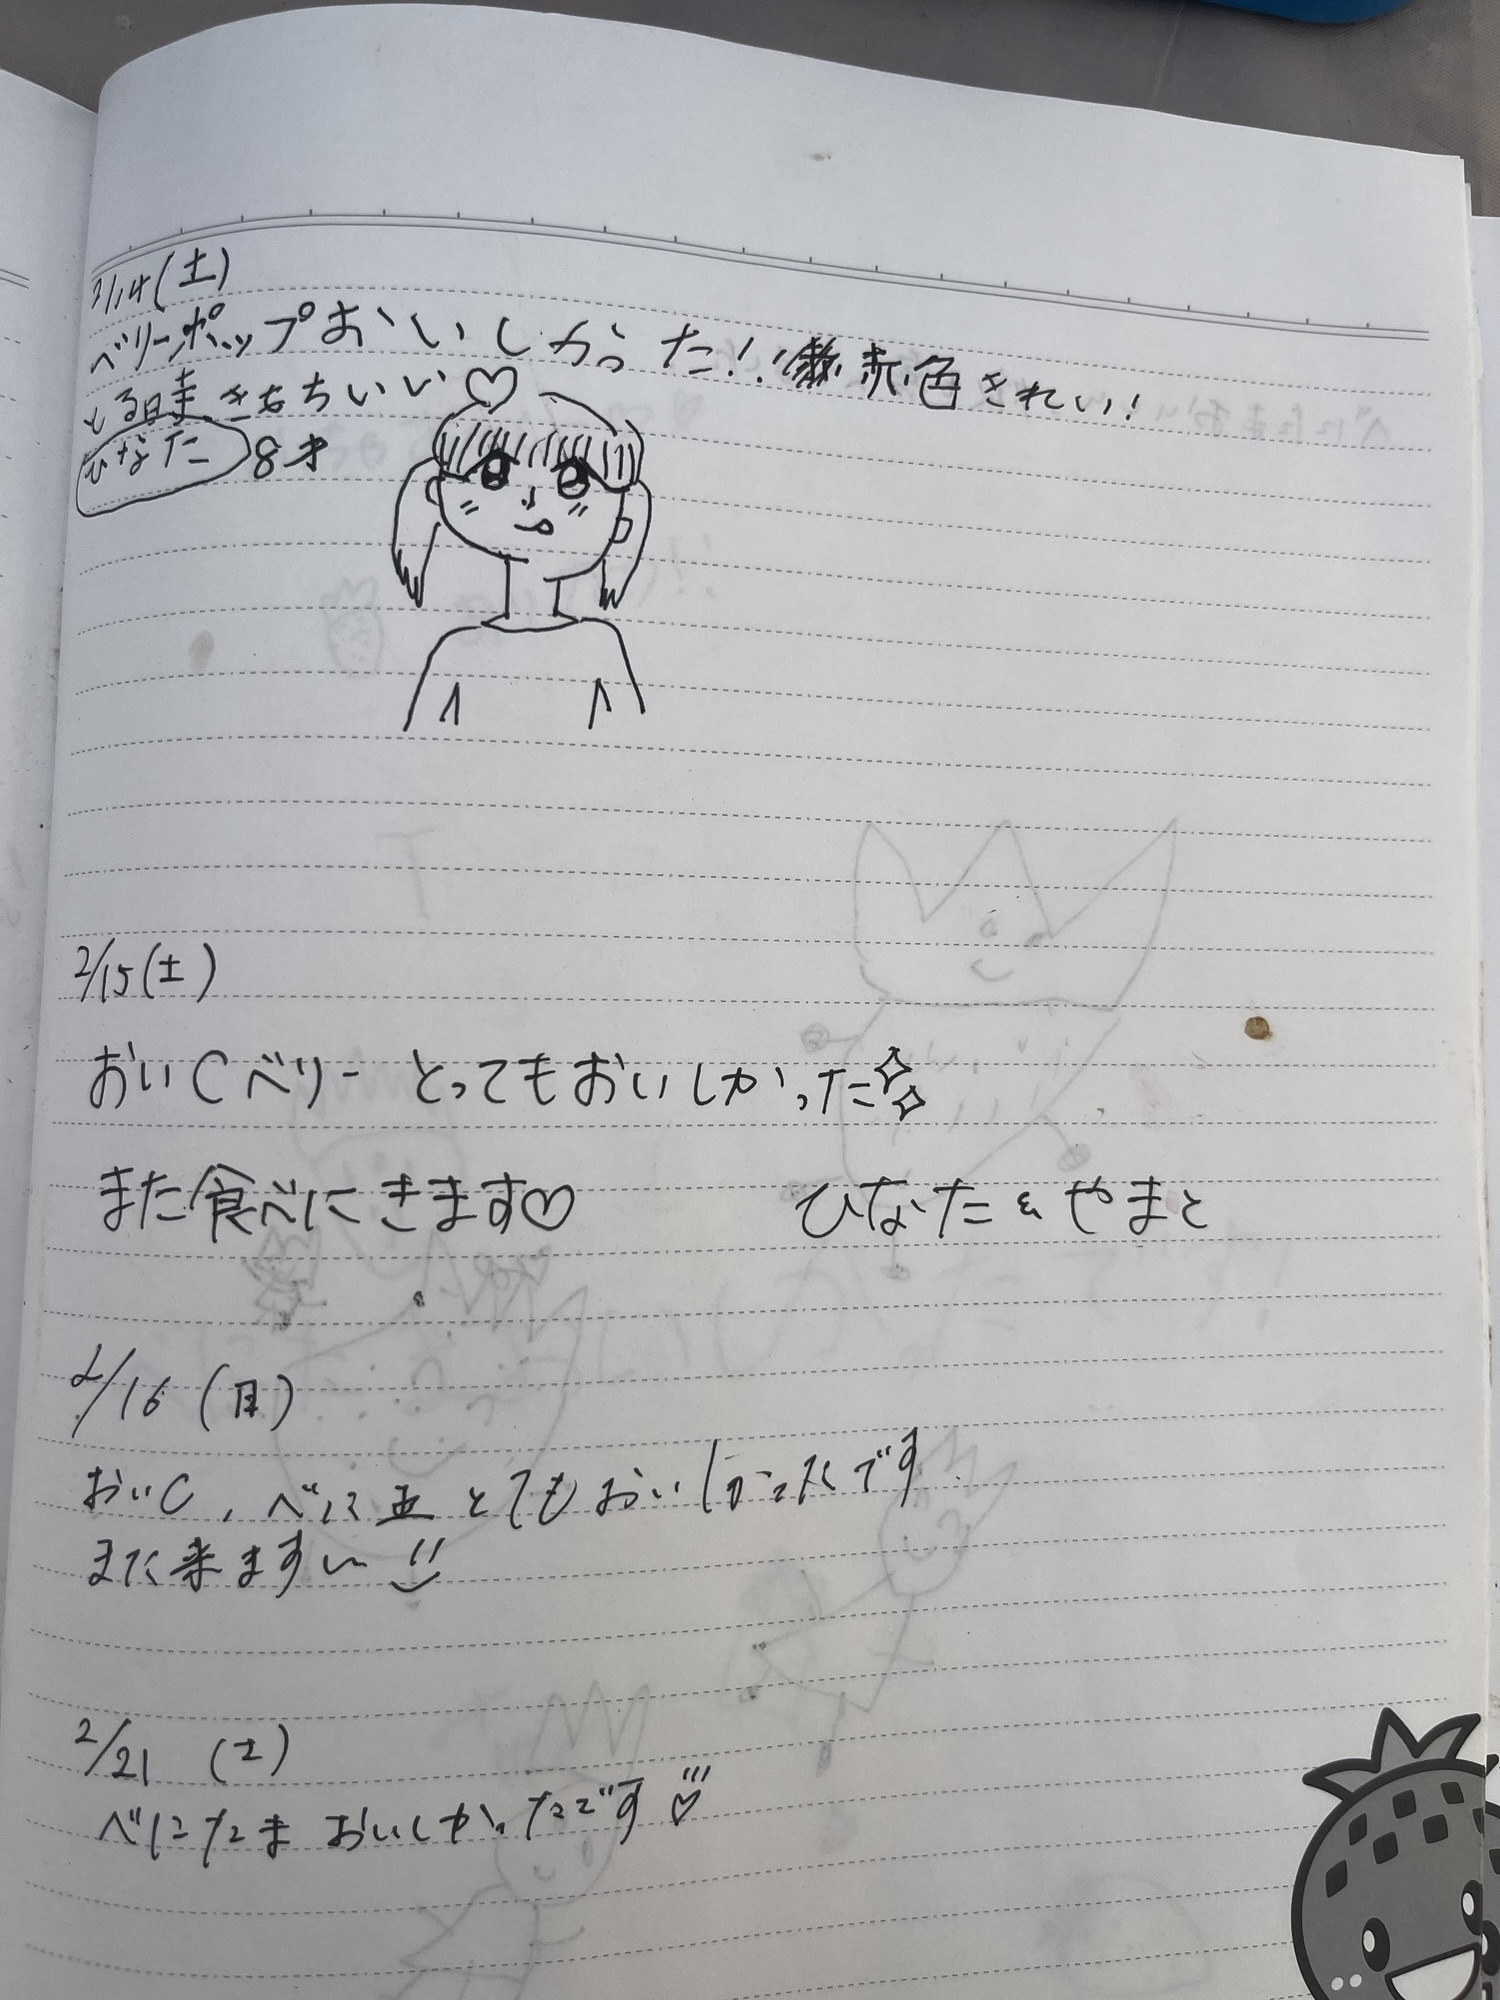 2/14(土)
ベリーポップおいしかった!! 赤色きれい!
とる時きもちいい♡
ひなた 8才
2/15(土)
おいCベリー とってもおいしかった✧✧
また食べにきます♡ ひなた&やまと
2/16(日)
おいC、べに玉 とてもおいしかったです
また来ます〜
2/21 (土)
べにたま おいしかったです♡